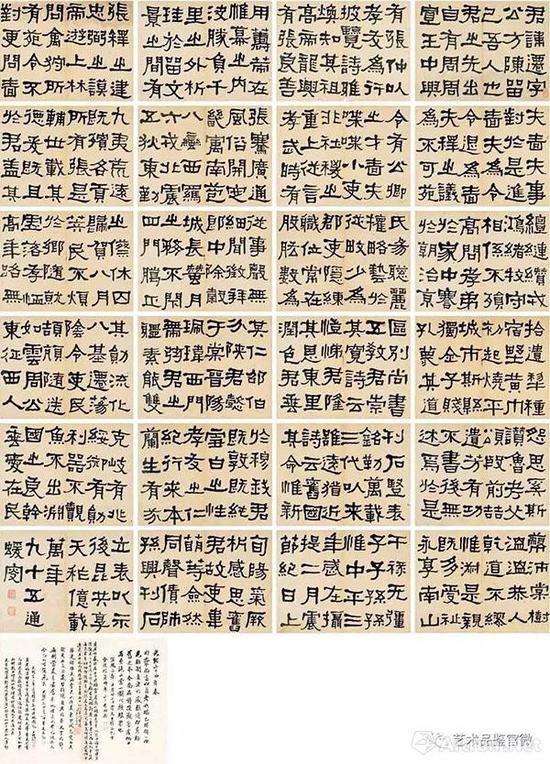 君諱遷字
公方陳留
己吾人也
君之先出
自有周周
宣王中興
有張仲以
孝友為行
披覽詩雅
煥知其祖
高帝龍興
有張良善
用籌策在
帷幕之內
決勝負千
里之外析
珪於留文
景之間有
張釋之建
忠弼之謨
帝遊上林
問禽狩所
有苑令不
對更問嗇
夫嗇夫事
對於是進
嗇夫為令
令退為嗇
夫釋之議
為不可苑
令有公卿
之才嗇夫
喋喋小吏
非社稷之
重上從言
孝武時有
張騫廣通
風俗開定
畿寓南苞
八蠻西羈
六戎北震
五狄東勤
九夷荒遠
既殯各貢
所有張是
輔世載其
德爰既且
於君蓋其
纘縺纘戎
鴻緒牧守
相係不殞
高問孝弟
於家中謇
於朝治京
氏易聰麗
權略藝於
從畋少為
郡吏隱練
職位常在
股肱數為
從事聲無
細聞徵拜
郎中除穀
城長蠶月
之務不閉
四門臘正
之僚休囚
歸賀八月
筭民不煩
於鄉隨就
虛落存恤
高年路無
拾遺犁種
宿野黃巾
初起燒平
城市斯縣
獨全子賤
孔蔑其道
區別尚書
五教君崇
其寬詩云
愷悌君隆
其恩東里
潤色君垂
其仁邵伯
分陝君懿
于棠晉陽
珮瑋西門
帶弦君之
體素能雙
其勛流化
八基遷蕩
陰令吏民
頡頏隨送
如雲周公
東征西人
怨思奚斯
讚魯考父
頌殷前喆
遺芳有功
不書後無
述焉於是
刊石豎表
銘勒萬載
三代以來
雖遠猶近
詩云舊國
其命惟新
於穆我君
既敦既純
雪白之性
孝友之仁
紀行來本
蘭生有芬
克岐有兆
綏御有勛
利器不覿
魚不出淵
國之良幹
垂愛在民
蔽沛棠樹
溫溫恭人
乾道不繆
唯淑是親
既多受祉
永享南山
干祿無疆
子子孫孫
惟中平三
年歲在攝
提二月震
節紀日上
旬陽氣厥
析感思舊
君故吏韋
萌等僉然
同聲賃師
孫興刊石
立表以示
後昆共享
天祚億載
萬年
九十五通
蝯叟
艺术品鉴官微